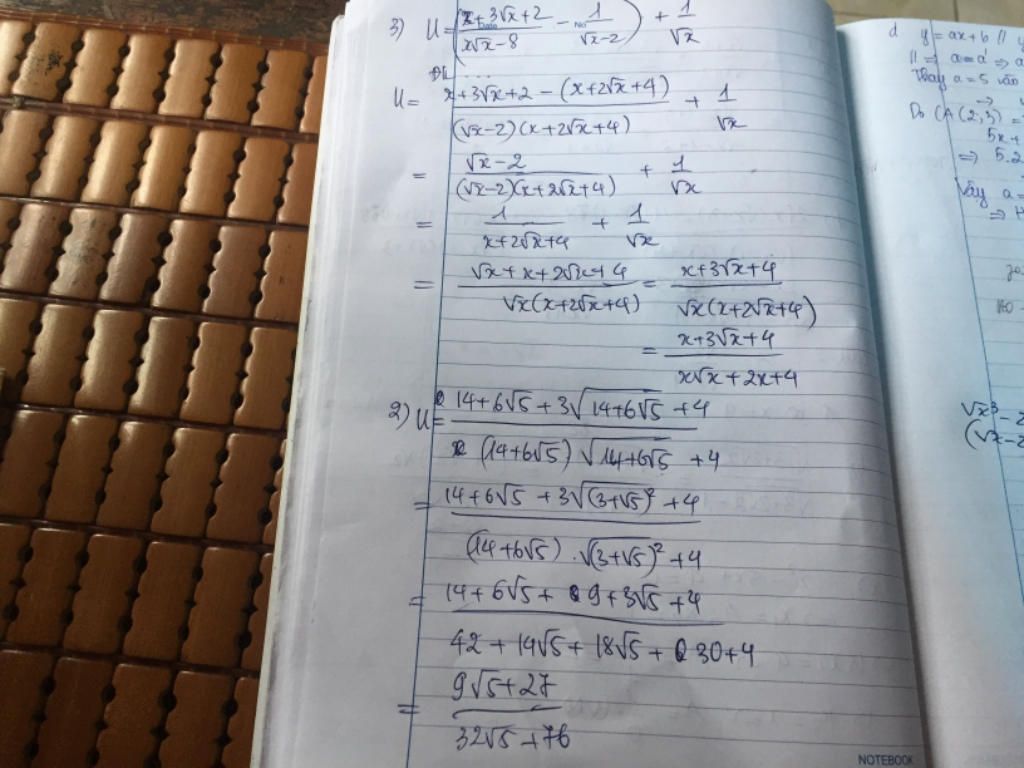 3) U = (x+3√x+2 / x√x-8 - 1 / √x-2) + 1 / √x
ĐK ...
U = x+3√x+2 - (x+2√x+4) / (√x-2)(x+2√x+4) + 1 / √x
= √x-2 / (√x-2)(x+2√x+4) + 1 / √x
= 1 / x+2√x+4 + 1 / √x
= √x+x+2√x+4 / √x(x+2√x+4) = x+3√x+4 / √x(x+2√x+4)
= x+3√x+4 / x√x+2x+4
2) U = 14+6√5+3√14+6√5+4 / (14+6√5)√14+6√5+4
= 14+6√5+3√(3+√5)²+4 / (14+6√5).√(3+√5)²+4
= 14+6√5+9+3√5+4 / 42+14√5+18√5+30+4
= 9√5+27 / 32√5+76
NOTEBOOK
d y=ax+b //
// => a=a' => a
Thay a=5 vào
Do (A(2;3) =
5x+
=> 5.2
Vậy a=
=> H
√x³-2
(√x-2